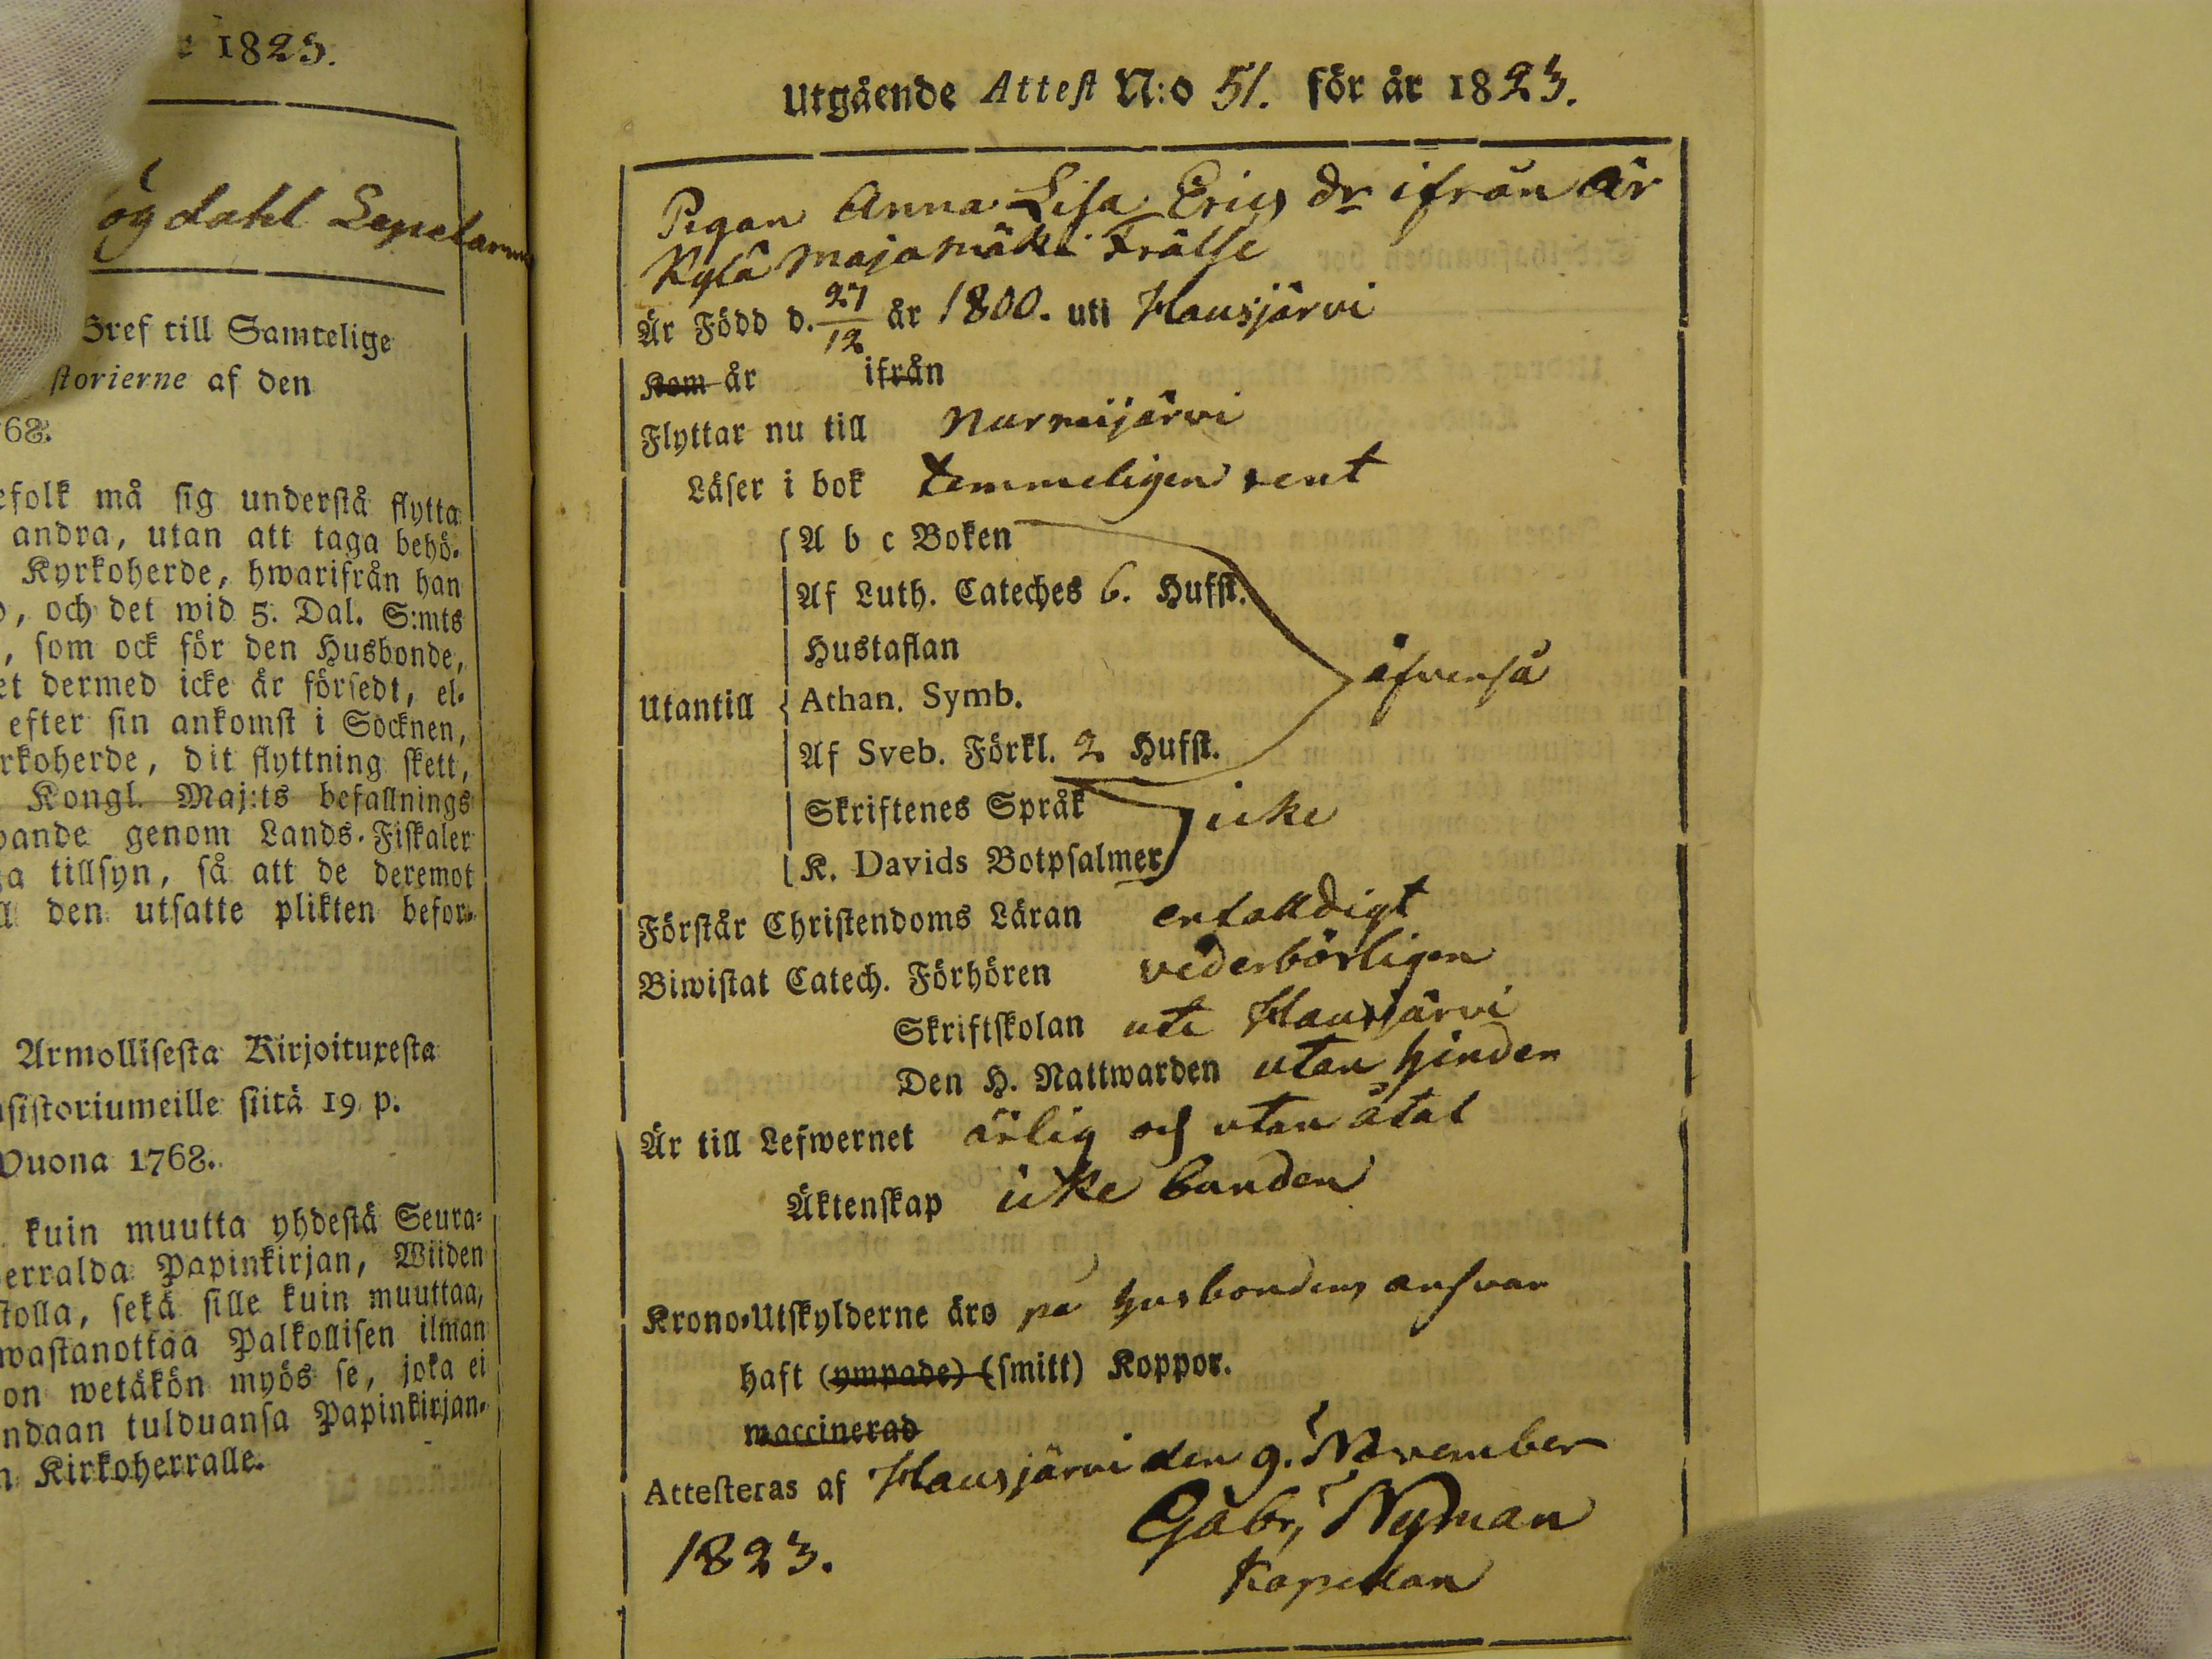 1823.
ögdahl Lepel
Bref till Samtelige
storierne af den
768.
efolk må sig understå flytta
andra, utan att taga behö-
Kyrkoherde, hwarifrån han
, och det wid 5. Dal. S:mts
, som ock för den Husbonde,
et dermed icke är försedt, el-
efter sin ankomst i Socknen,
rkoherde, dit flyttning skett,
Kongl. Maj:ts befallnings
ande genom Lands-Fiskaler
a tillsyn, så att de deremot
den utsatte plikten befor-
Armollisesta Kirjoituxesta
sistoriumeille siitä 19 p.
Wuona 1768.
kuin muutta yhdestä Seura-
erralda Papinkirjan, Wiiden
tolla, sekä sille kuin muuttaa,
wastanottaa Palkollisen ilman
on wetäkön myös se, joka ei
ndaan tulduansa Papinkirjan-
n Kirkoherralle.
Utgående Attest N:o 51. för år 1823.
Pigan Anna Lisa Erics dr ifrån Är
Kylä Majamäki Frälse
Är Född d. 27/12 år 1800. uti Hausjärvi
Kom år ifrån
Flyttar nu till Nurmijärvi
Läser i bok temmeligen rent
A b c Boken
Af Luth. Cateches 6. Hufst.
Hustaflan
Utantill Athan. Symb. äfvenså
Af Sveb. Förkl. 2 Hufst.
Skriftenes Språk icke
K. Davids Botpsalmer
Förstår Christendoms Läran enfalldigt
Biwistat Catech. Förhören vederbörligen
Skriftskolan uti Hausjärvi
Den H. Nattwarden utan hinder
Är till Lefwernet ärlig och utan åtal
Äktenskap icke bunden
Krono-Utskylderne äro på husbondens ansvar
haft (ympade) (smitt) Koppor.
waccinerad
Attesteras af Hausjärvi den 9. November
1823. Gabr, Nyman
Kapellan